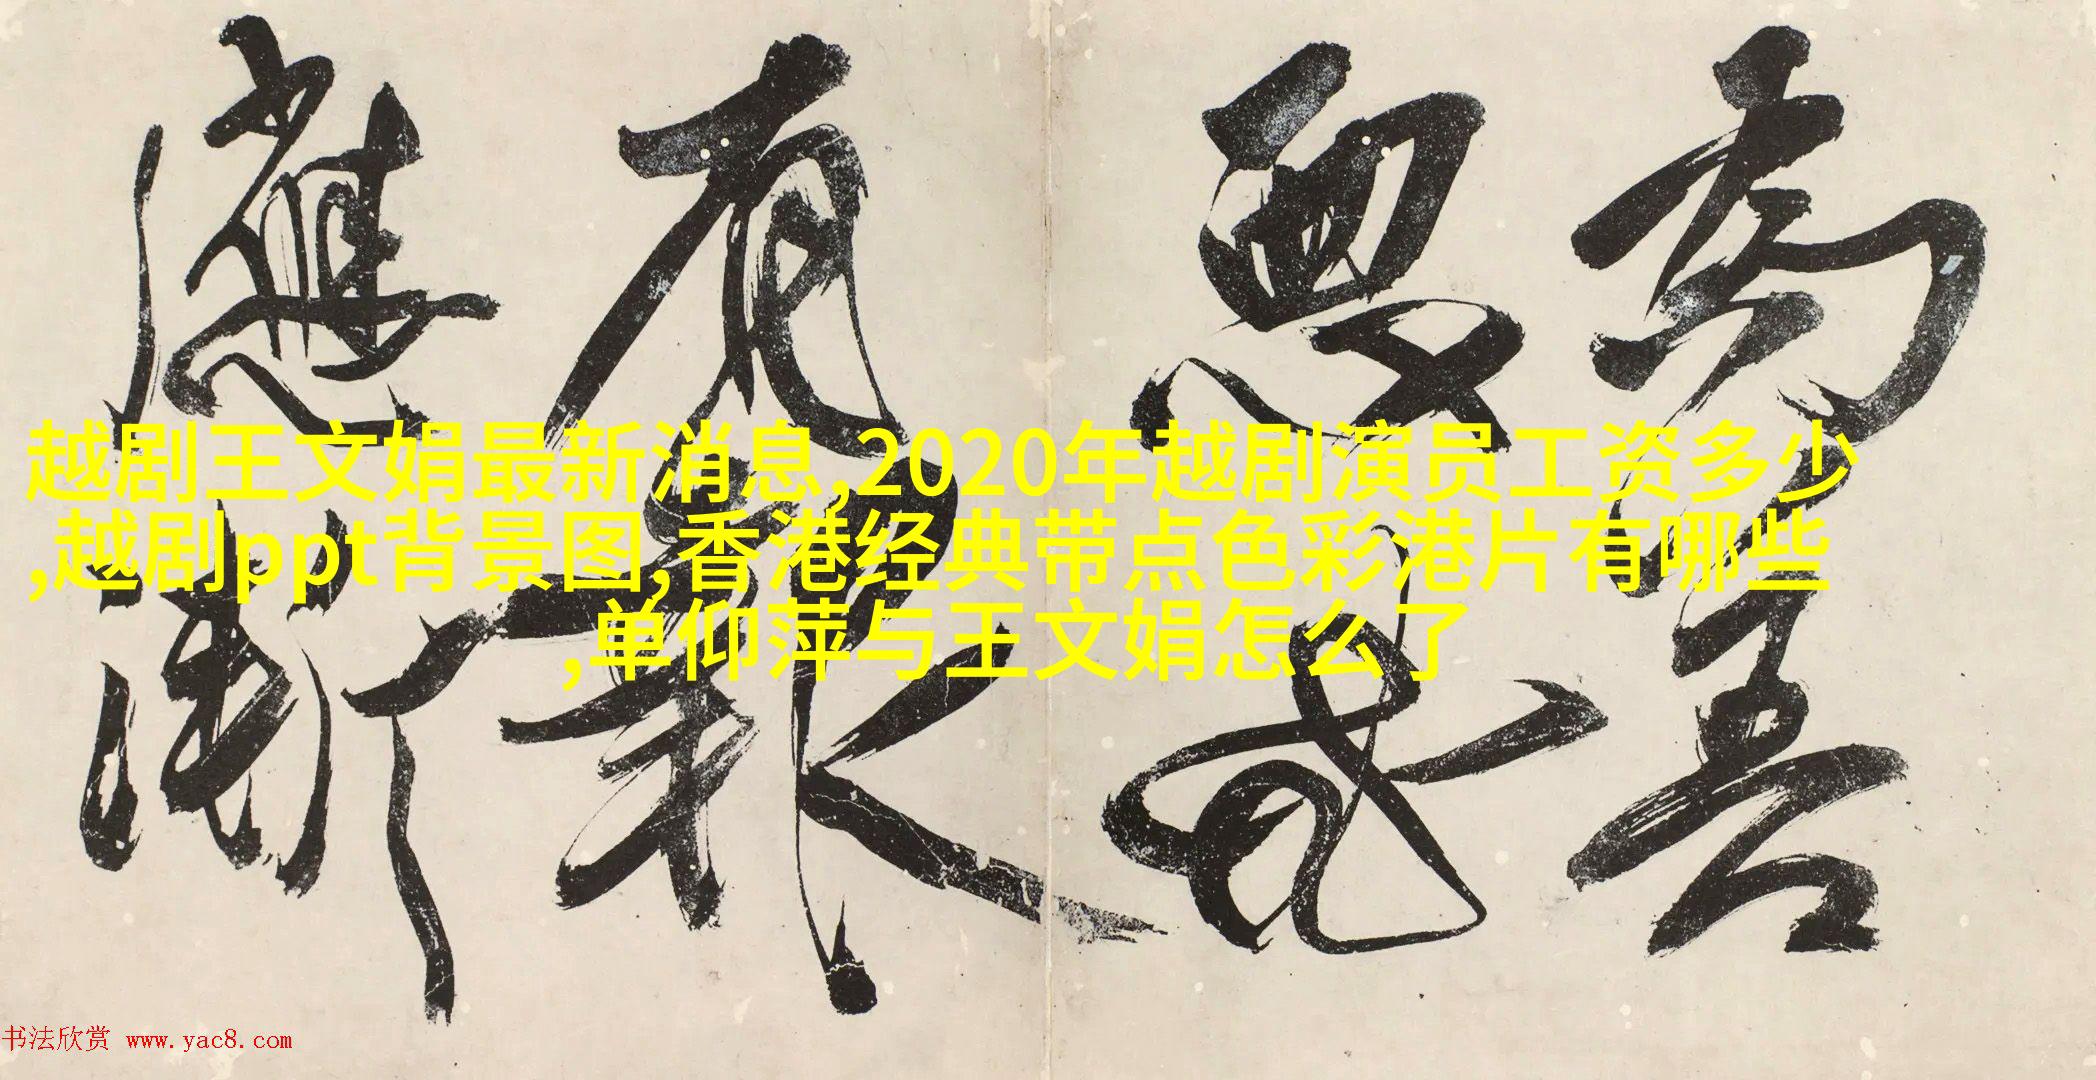 為善
惡
有報
應漸
越剧王文娟最新消息,2020年越剧演员工资多少
,越剧ppt背景图,香港经典带点色彩港片有哪些
,单仰萍与王文娟怎么了
书法欣赏 www.yac8.com